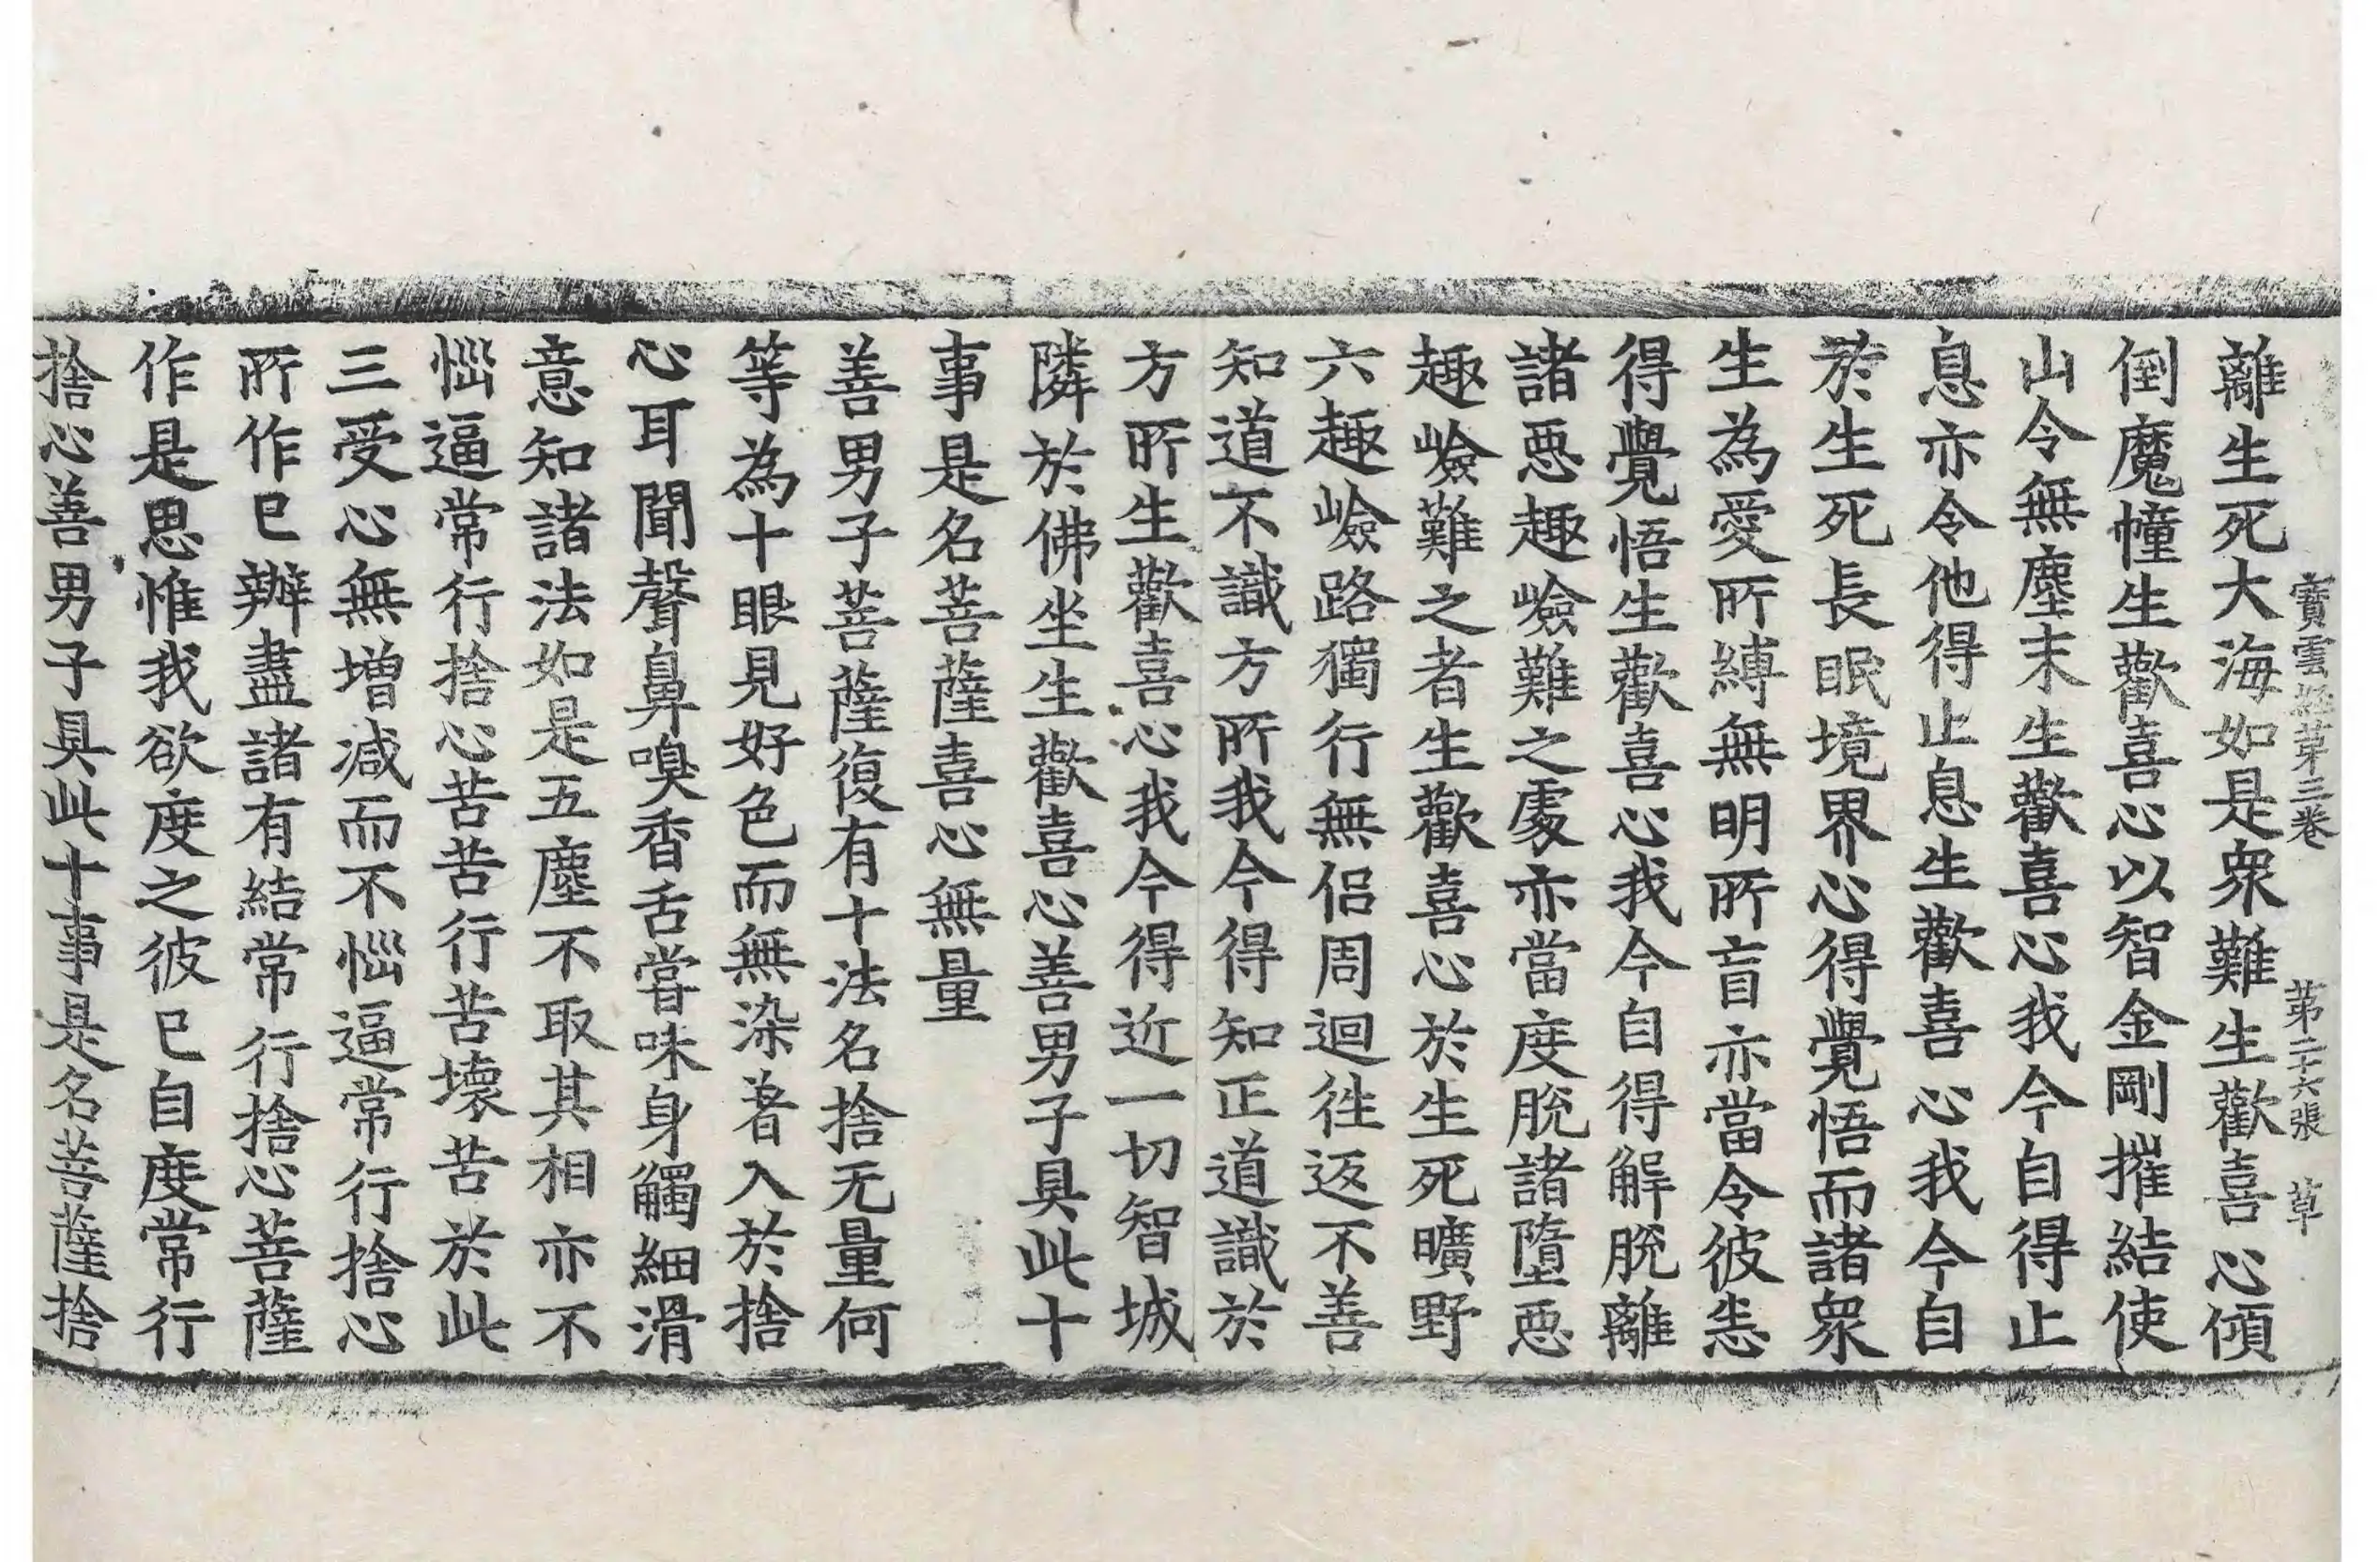 寶雲經第三卷 第二十六張 草
離生死大海如是衆難生歡喜心傾
倒魔幢生歡喜心以智金剛摧結使
山令無塵末生歡喜心我今自得止
息亦令他得止息生歡喜心我今自
於生死長眠境界心得覺悟而諸衆
生為愛所縛無明所盲亦當令彼恚
得覺悟生歡喜心我今自得解脫離
諸惡趣嶮難之處亦當度脫諸墮惡
趣嶮難之者生歡喜心於生死曠野
六趣嶮路獨行無侶周迴徃返不善
知道不識方所我今得知正道識於
方所生歡喜心我今得近一切智城
隣於佛坐生歡喜心善男子具此十
事是名菩薩喜心無量
善男子菩薩復有十法名捨无量何
等為十眼見好色而無染著入於捨
心耳聞聲鼻嗅香舌嘗味身觸細滑
意知諸法如是五塵不取其相亦不
惱逼常行捨心苦苦行苦壞苦於此
三受心無增減而不惱逼常行捨心
所作已辦盡諸有結常行捨心菩薩
作是思惟我欲度之彼已自度常行
捨心善男子具此十事是名菩薩捨